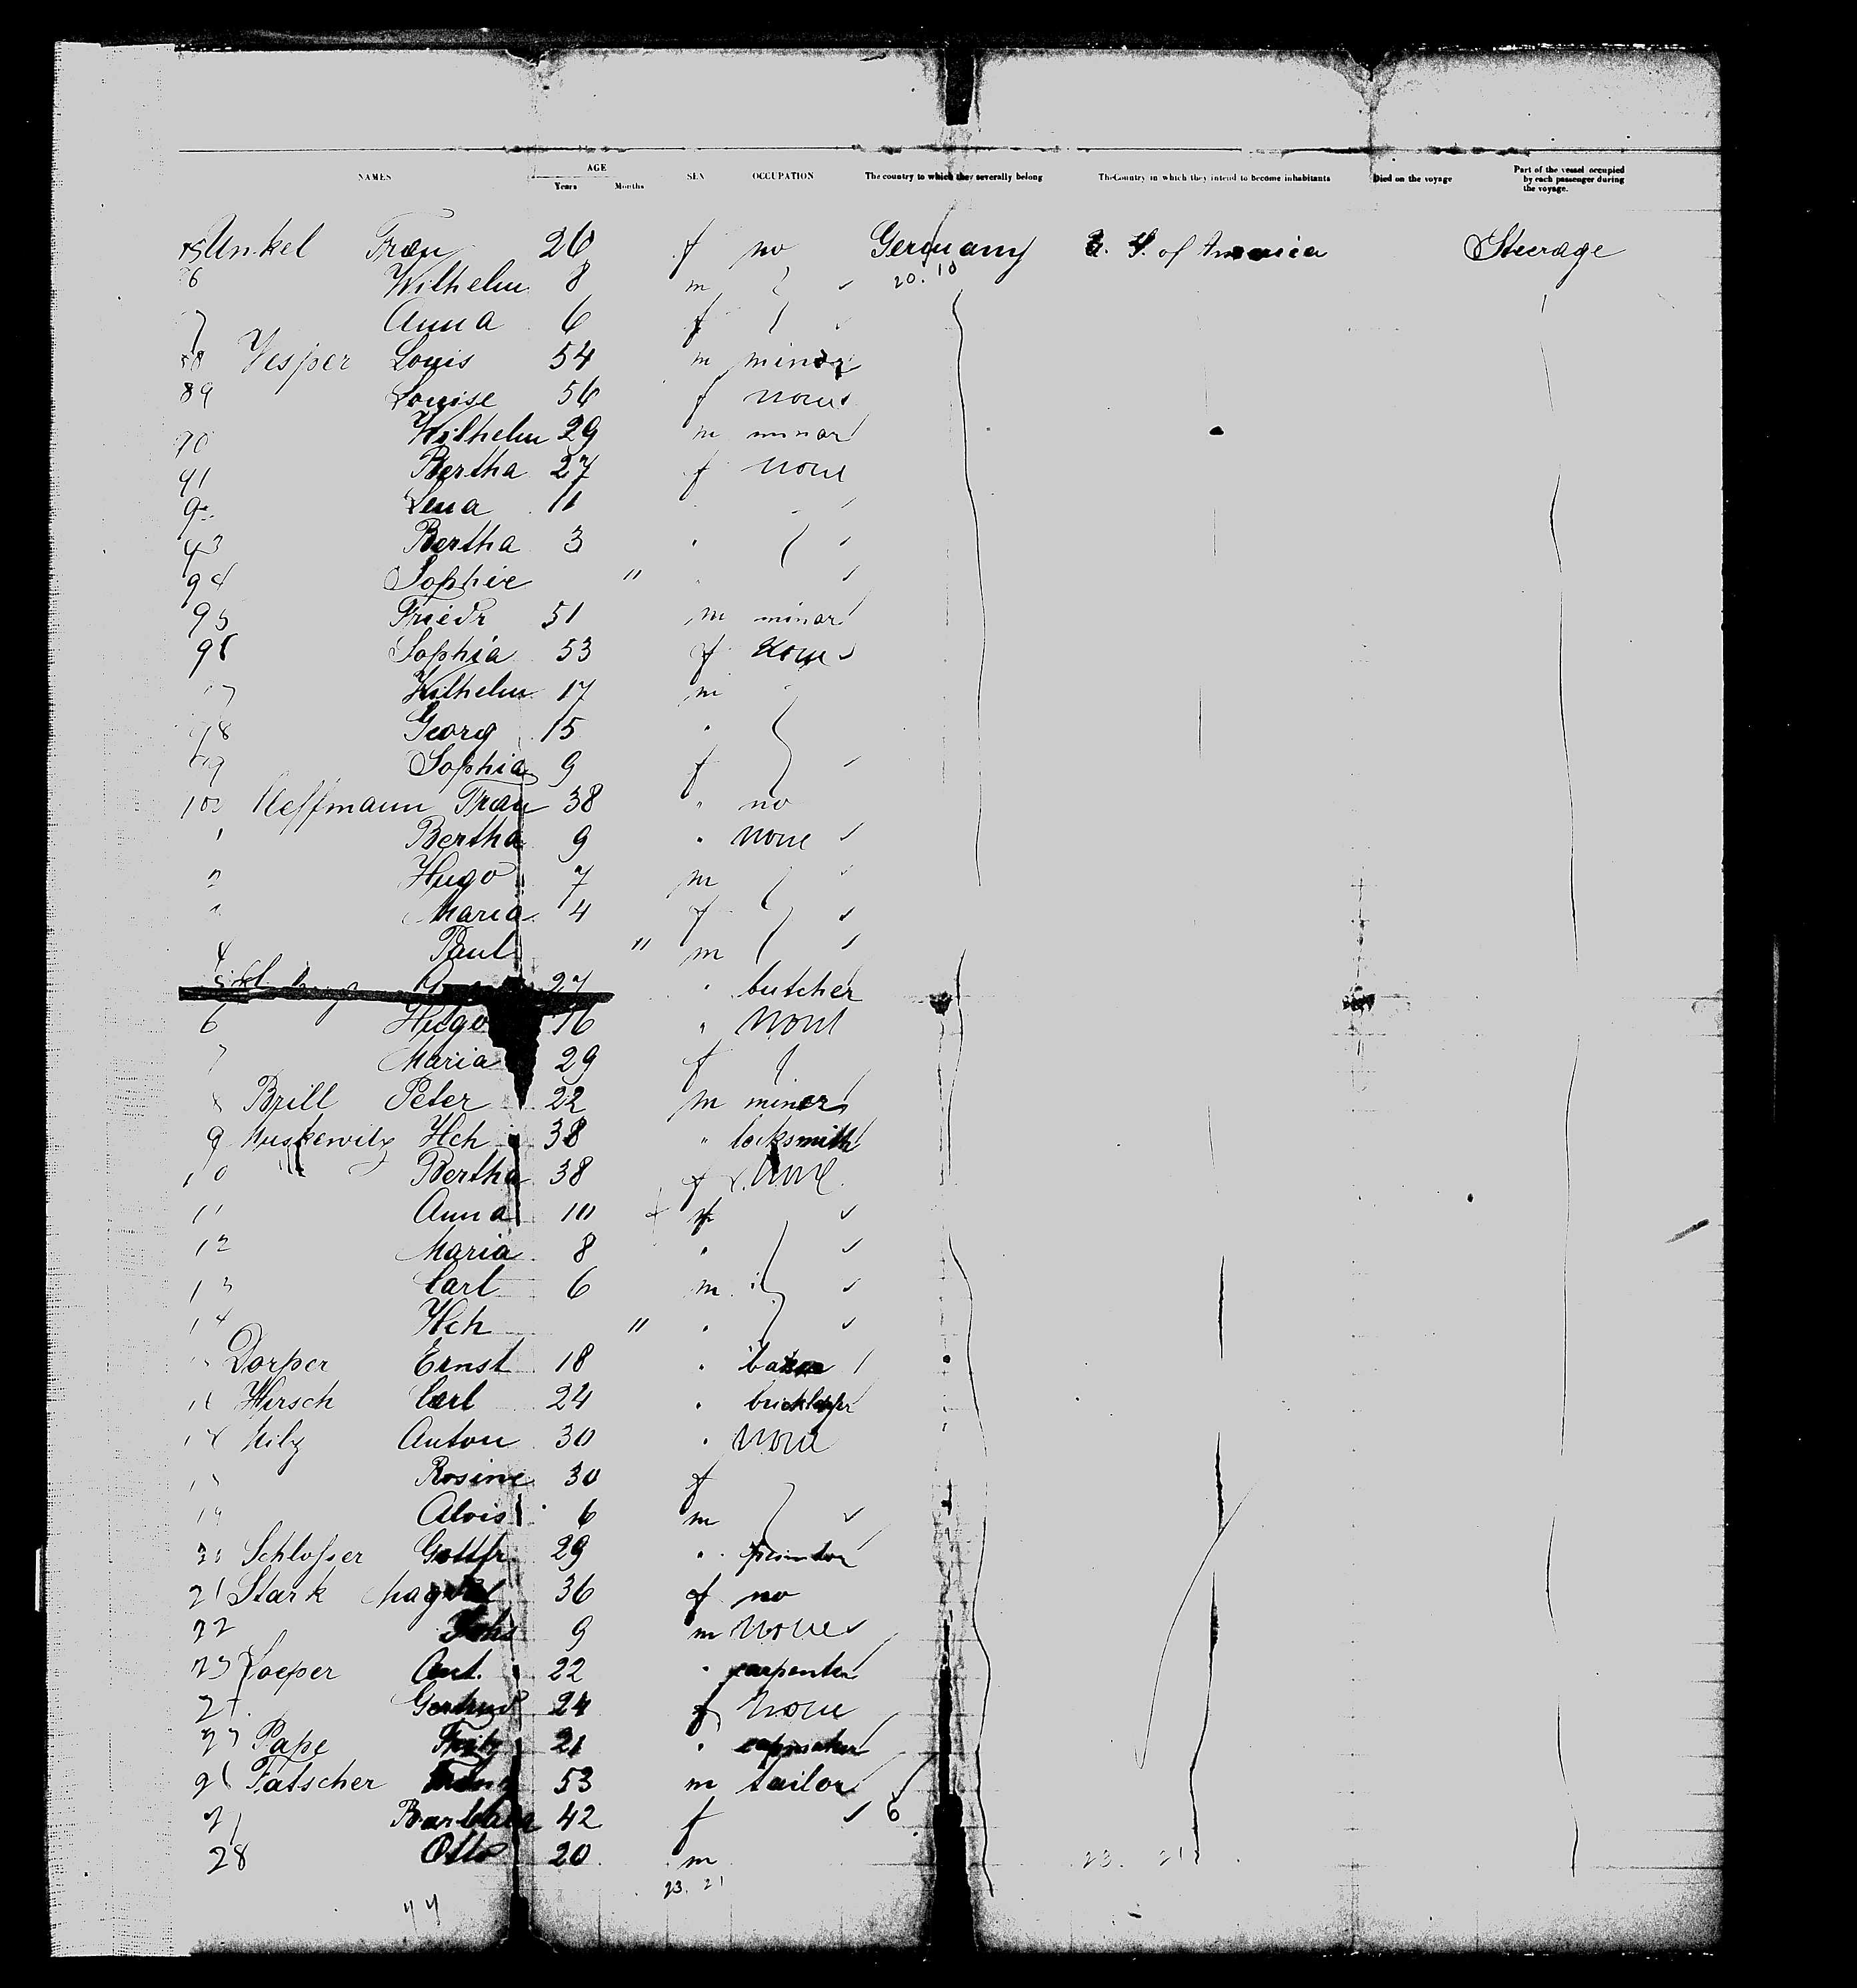 NAMES AGE Years Months SEX OCCUPATION The country to which they severally belong The Country in which they intend to become inhabitants Died on the voyage Part of the vessel occupied by each passenger during the voyage.
Unkel Frau 26 f no Germany U. S. of America Steerage
6 Wilhelm 8 m 20. 10
7 Anna 6 f
88 Vesper Louis 54 m miner
89 Louise 56 f none
90 Wilhelm 29 m minor
91 Bertha 27 f none
Lena 11
93 Bertha 3
94 Sophie "
95 Friedr 51 m minor
96 Sophia 53 f none
Wilhelm 17 m
98 Georg 15
99 Sophia 9 f
100 Heffmann Frau 38 " no
1 Bertha 9 " none
2 Hugo 7 m
Maria 4 f
4 Paul " m
5 27 " butcher
6 Hugo 16 " none
7 Maria 29 f
Brill Peter 22 m miner
9 Hch 38 " locksmith
10 Bertha 38 f none
11 Anna 10 f
12 Maria 8 "
13 Carl 6 m
14 Hch " "
Dorper Ernst 18 "
Hirsch Carl 24 "
Milz Anton 30 " none
Rosine 30 f
19 Alois 6 m
Schlosser Gottfr. 29 "
21 Stark 36 f no
22 9 m none
23 Ant. 22 " carpenter
Gertrud 24 f none
Pape Fritz 21 "
Tatscher 53 m tailor
Barbara 42 f 6
28 Otto 20 m 23. 21
23. 21
44